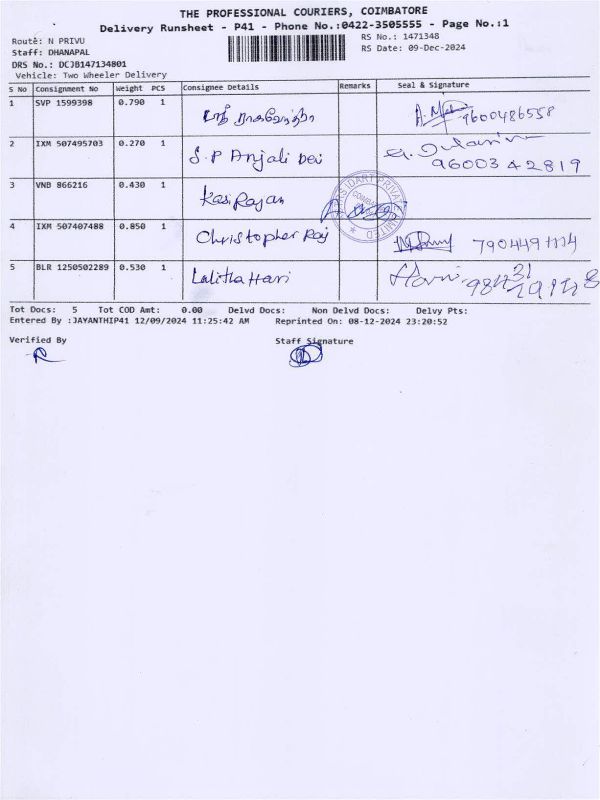 THE PROFESSIONAL COURIERS, COIMBATORE
Delivery Runsheet - P41 - Phone No.:0422-3505555 - Page No.:1
Route: N PRIVU
RS No.: 1471348
Staff: DHANAPAL
RS Date: 09-Dec-2024
DRS No.: DCJB147134801
Vehicle: Two Wheeler Delivery
S No Consignment No Weight PCS Consignee Details Remarks Seal & Signature
1 SVP 1599398 0.790 1 ஸ்ரீ ராகவேந்திரா 9600486558
2 IXM 507495703 0.270 1 S.P Anjali Devi 9600342819
3 VNB 866216 0.430 1 Kasi Rajan
4 IXM 507407488 0.850 1 Christopher Raj
5 BLR 1250502289 0.530 1 Lalitha Hari Hari
Tot Docs: 5 Tot COD Amt: 0.00 Delvd Docs: Non Delvd Docs: Delvy Pts:
Entered By :JAYANTHIP41 12/09/2024 11:25:42 AM Reprinted On: 08-12-2024 23:20:52
Verified By Staff Signature